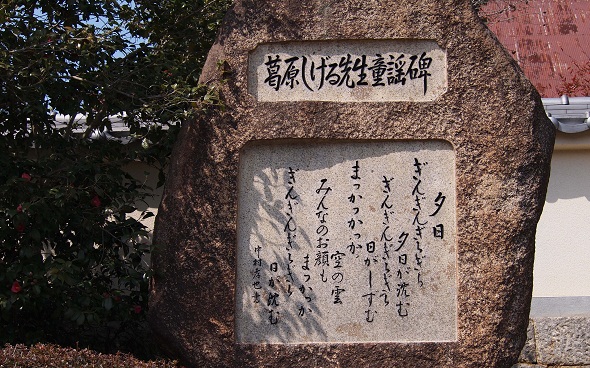 葛原しげる先生童謡碑
夕日
ぎんぎんぎらぎら
夕日が沈む
ぎんぎんぎらぎら
日がしずむ
まっかっかっか
空の雲
みんなのお顔も
まっかっか
ぎんぎんぎらぎら
日が沈む